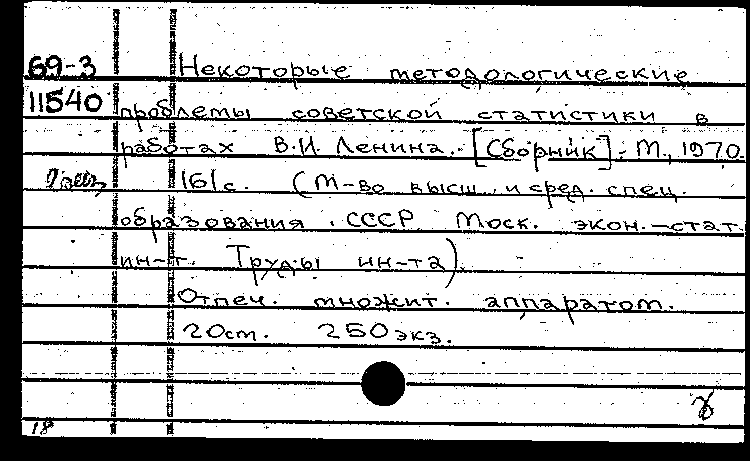 69-3 Некоторые методологические
11540 проблемы советской статистики в
работах В.И. Ленина. [Сборник]. М., 1970.
161 с. (М-во высш. и сред. спец.
образования СССР. Моск. экон.-стат.
ин-т. Труды ин-та).
Отпеч. множит. аппаратом.
20ст. 250 экз.
18